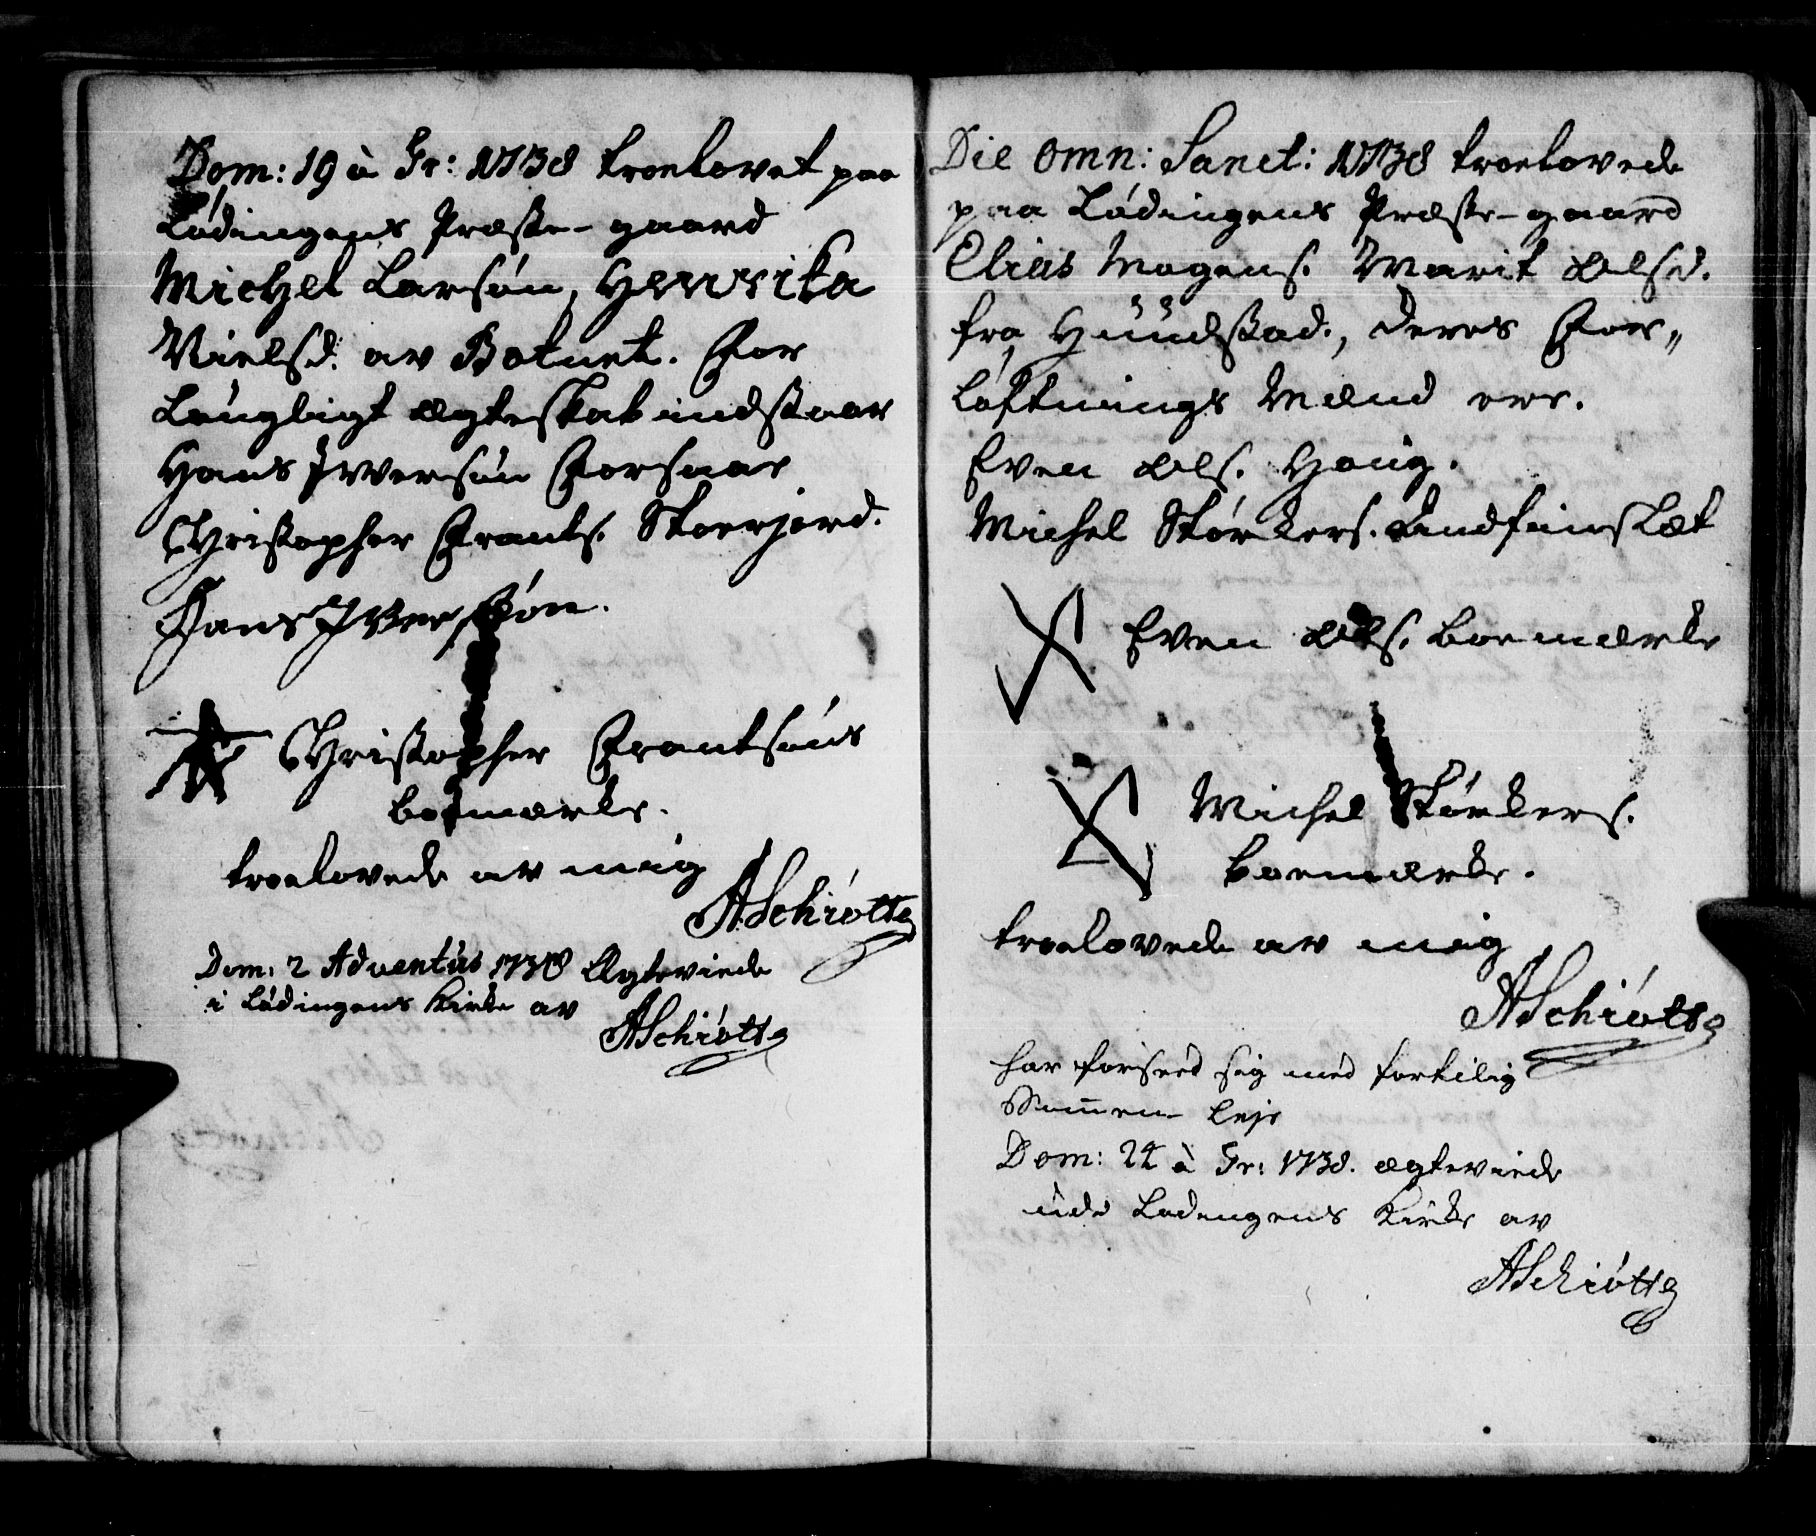 Dom: 19 à Tr: 1738 troelovet paa
Lødingens Præste-gaard
Michel Larsøn, Henrika
Nielsd. av Botnet. For
Lougligt ægteskab indstaar
Hans Iversøn Forsaae
Christopher Frants. Storjord.
Hans Iversøn.
Christopher Frantsøns
boemærke.
troelovede av mig
ASchiøtte
Dom: 2 Adventus 1738 Ægteviede
i Lødingens Kirke av
ASchiøtte
Die Omn: Sanct: 1738 troelovede
paa Lødingens Præste-gaard
Elias Mogens. Marit Olsd.
fra Hundstad., deres For„
løftnings Mænd ere.
Even Ols. Houg.
Michel Størkers.
Even Ols. boemærke
Michel Størkers.
boemærke.
troelovede av mig
ASchiøtte
har forseed sig med fortilig
Sammen leje
Dom: 22 à Tr: 1738. ægteviede
udi Lødingens Kirke av
ASchiøtte